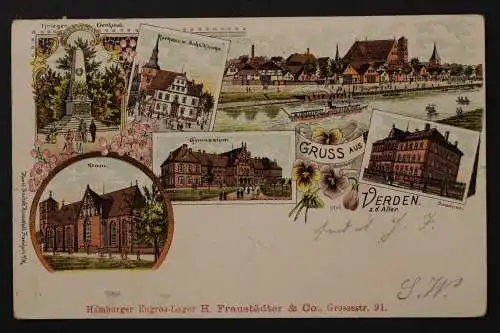 Krieger Denkmal.
Rathaus u. Joh. Kirche
Gymnasium
GRUSS AUS
VERDEN.
a.d. Aller.
Dom.
S. W.
Hamburger Engros-Lager H. Fraustädter & Co., Grossestr. 91.